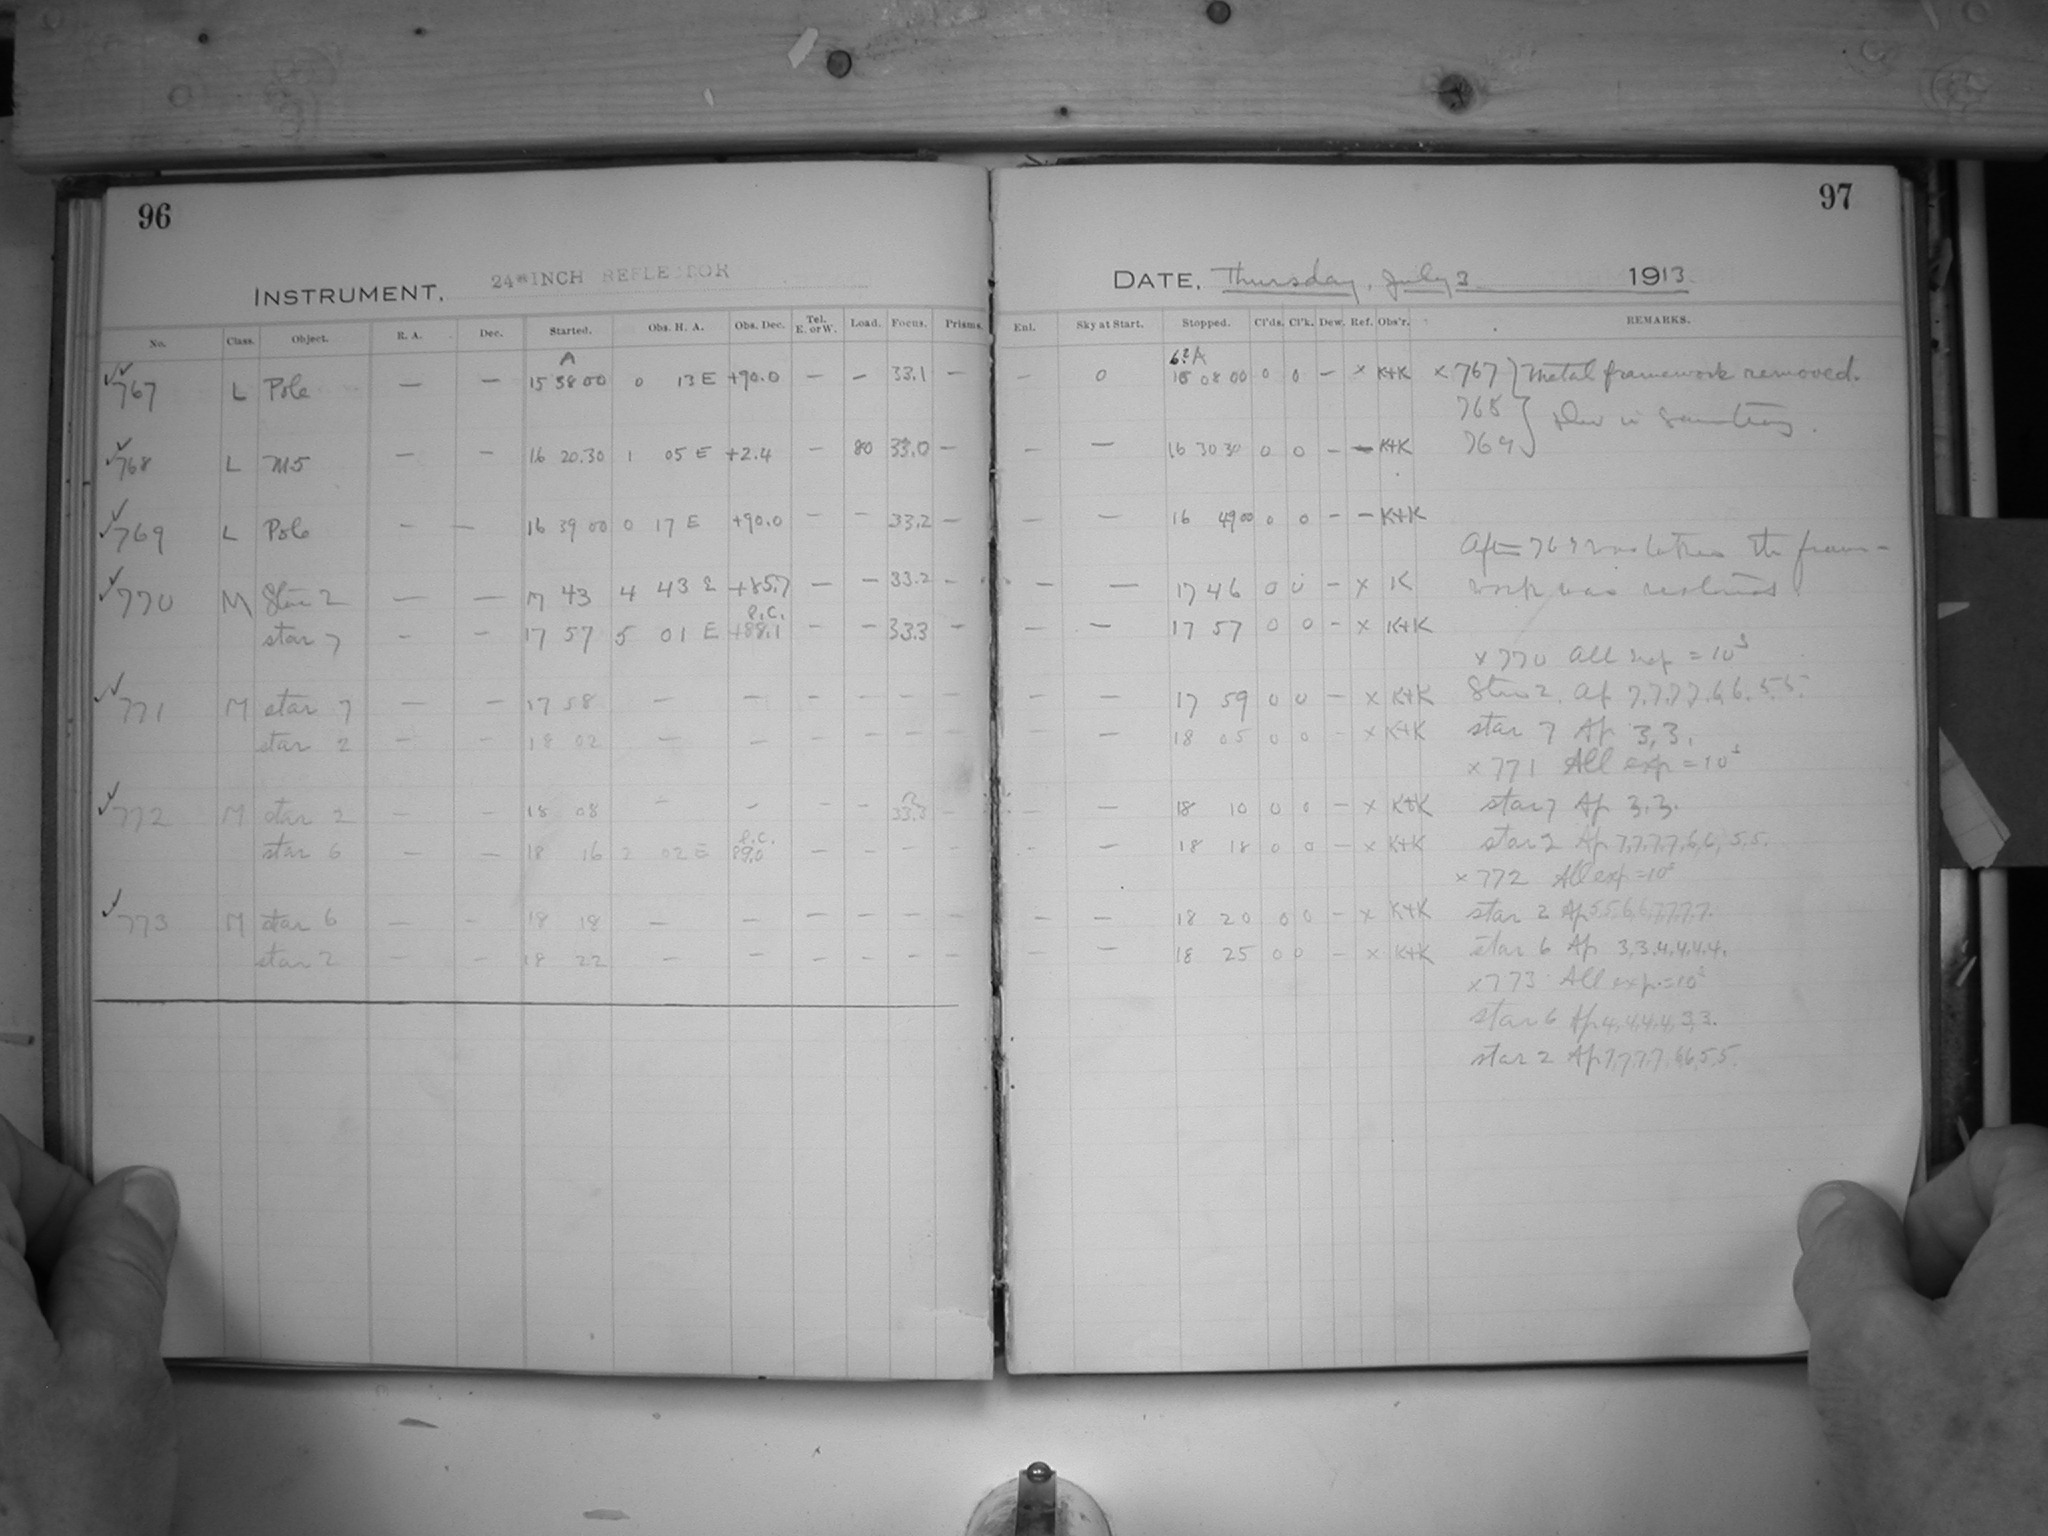 96
INSTRUMENT. 24-INCH REFLECTOR
No. Class. Object. R. A. Dec. Started. Obs. H. A. Obs. Dec. Tel. E. or W. Load. Focus. Prisms.
A
✓✓ 767 L Pole — — 15 58 00 0 13 E +90.0 — — 33.1 —
✓✓ 768 L M5 — — 16 20.30 1 05 E +2.4 — 80 33.0 —
✓✓ 769 L Pole — — 16 39 00 0 17 E +90.0 — — 33.2 —
✓✓ 770 M Star 2 — — 17 43 4 43 E +85.7 — — 33.2 —
S.C.
star 7 — — 17 57 5 01 E +88.1 — — 33.3 —
✓✓ 771 M star 7 — — 17 58 — — — — — —
star 2 — — 18 02 — — — — — —
✓ 772 M star 2 — — 18 08 — — — — 33.3 —
S.C.
star 6 — — 18 16 2 02 E 89.0 — — — —
✓ 773 M star 6 — — 18 18 — — — — — —
star 2 — — 18 22 — — — — — —
97
DATE, Thursday, July 3 1913.
Enl. Sky at Start. Stopped. Cl'ds. Cl'k. Dew. Ref. Obs'r. REMARKS.
A
— 0 08 00 0 0 — × K+K × 767 } Metal framework removed.
768
— — 16 30 30 0 0 — — K+K 769
— — 16 49 00 0 0 — — K+K
After 769 was taken the frame-
— — 17 46 0 0 — × K work was restored.
— — 17 57 0 0 — × K+K
× 770 All exp = 10s
— — 17 59 0 0 — × K+K Star 2. Ap 7,7,7,7,6,6,5,5.
— 18 05 0 0 — × K+K star 7 Ap 3,3.
× 771 All exp = 10s
— — 18 10 0 0 — × K+K star 7 Ap 3.3.
— — 18 18 0 0 — × K+K star 2 Ap 7,7,7,7,6,6,5,5.
× 772 All exp = 10s
— — 18 20 0 0 — × K+K star 2 Ap 5,5,6,6,7,7,7,7.
— — 18 25 0 0 — × K+K star 6 Ap 3,3,4,4,4,4.
× 773 All exp. = 10s
star 6 Ap 4,4,4,4,3,3.
star 2 Ap 7,7,7,7,6,6,5,5.